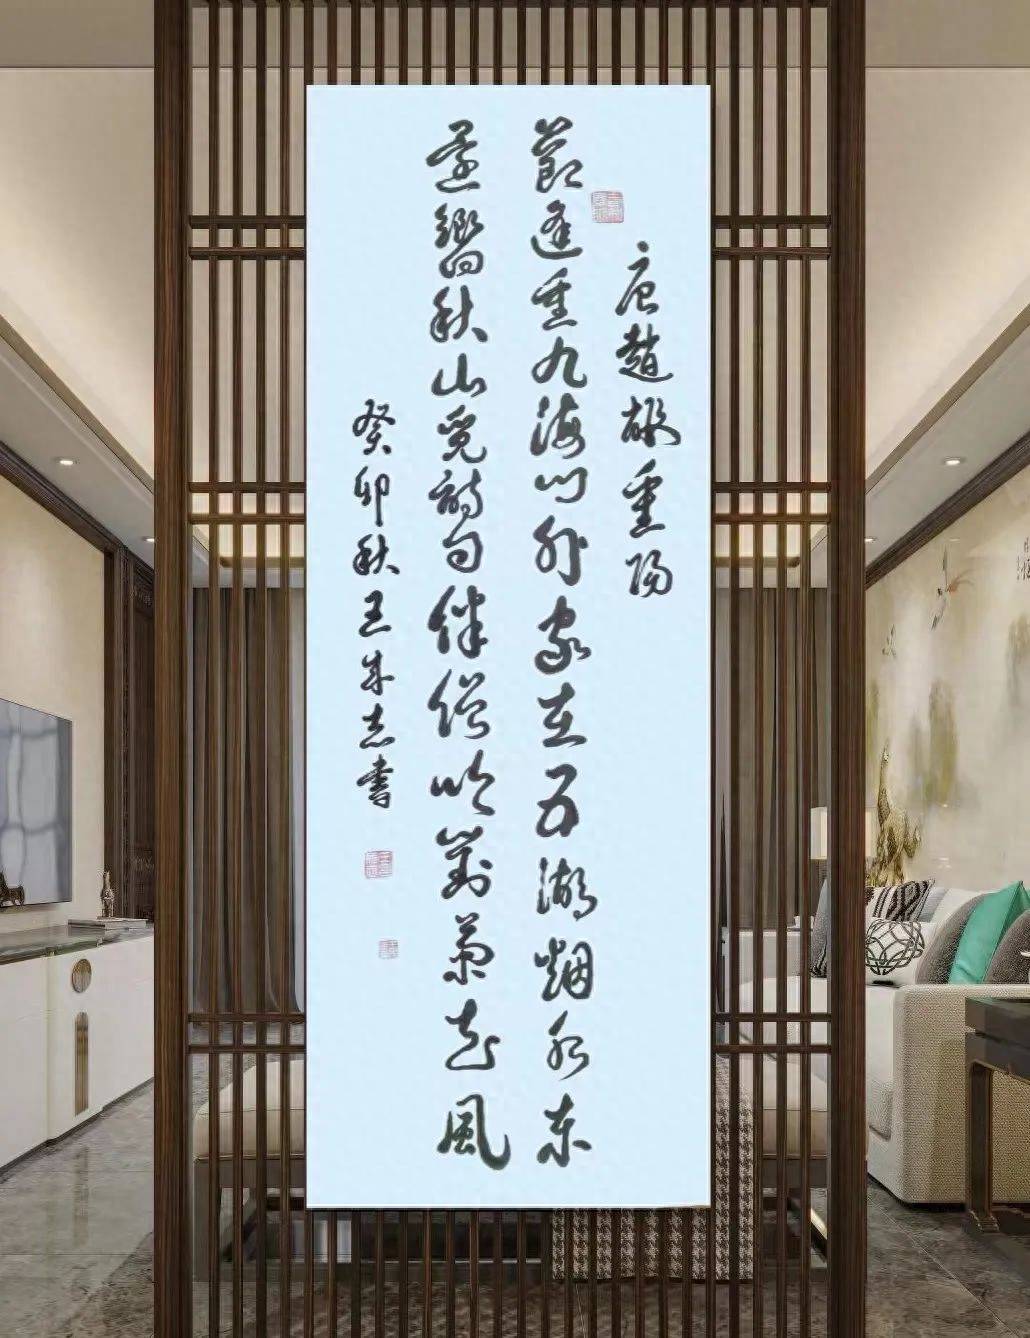 唐趙嘏重陽
節逢重九海門外家在五湖烟水東
還嚮秋山覓詩句伴僧吟對菊花風
癸卯秋王志書